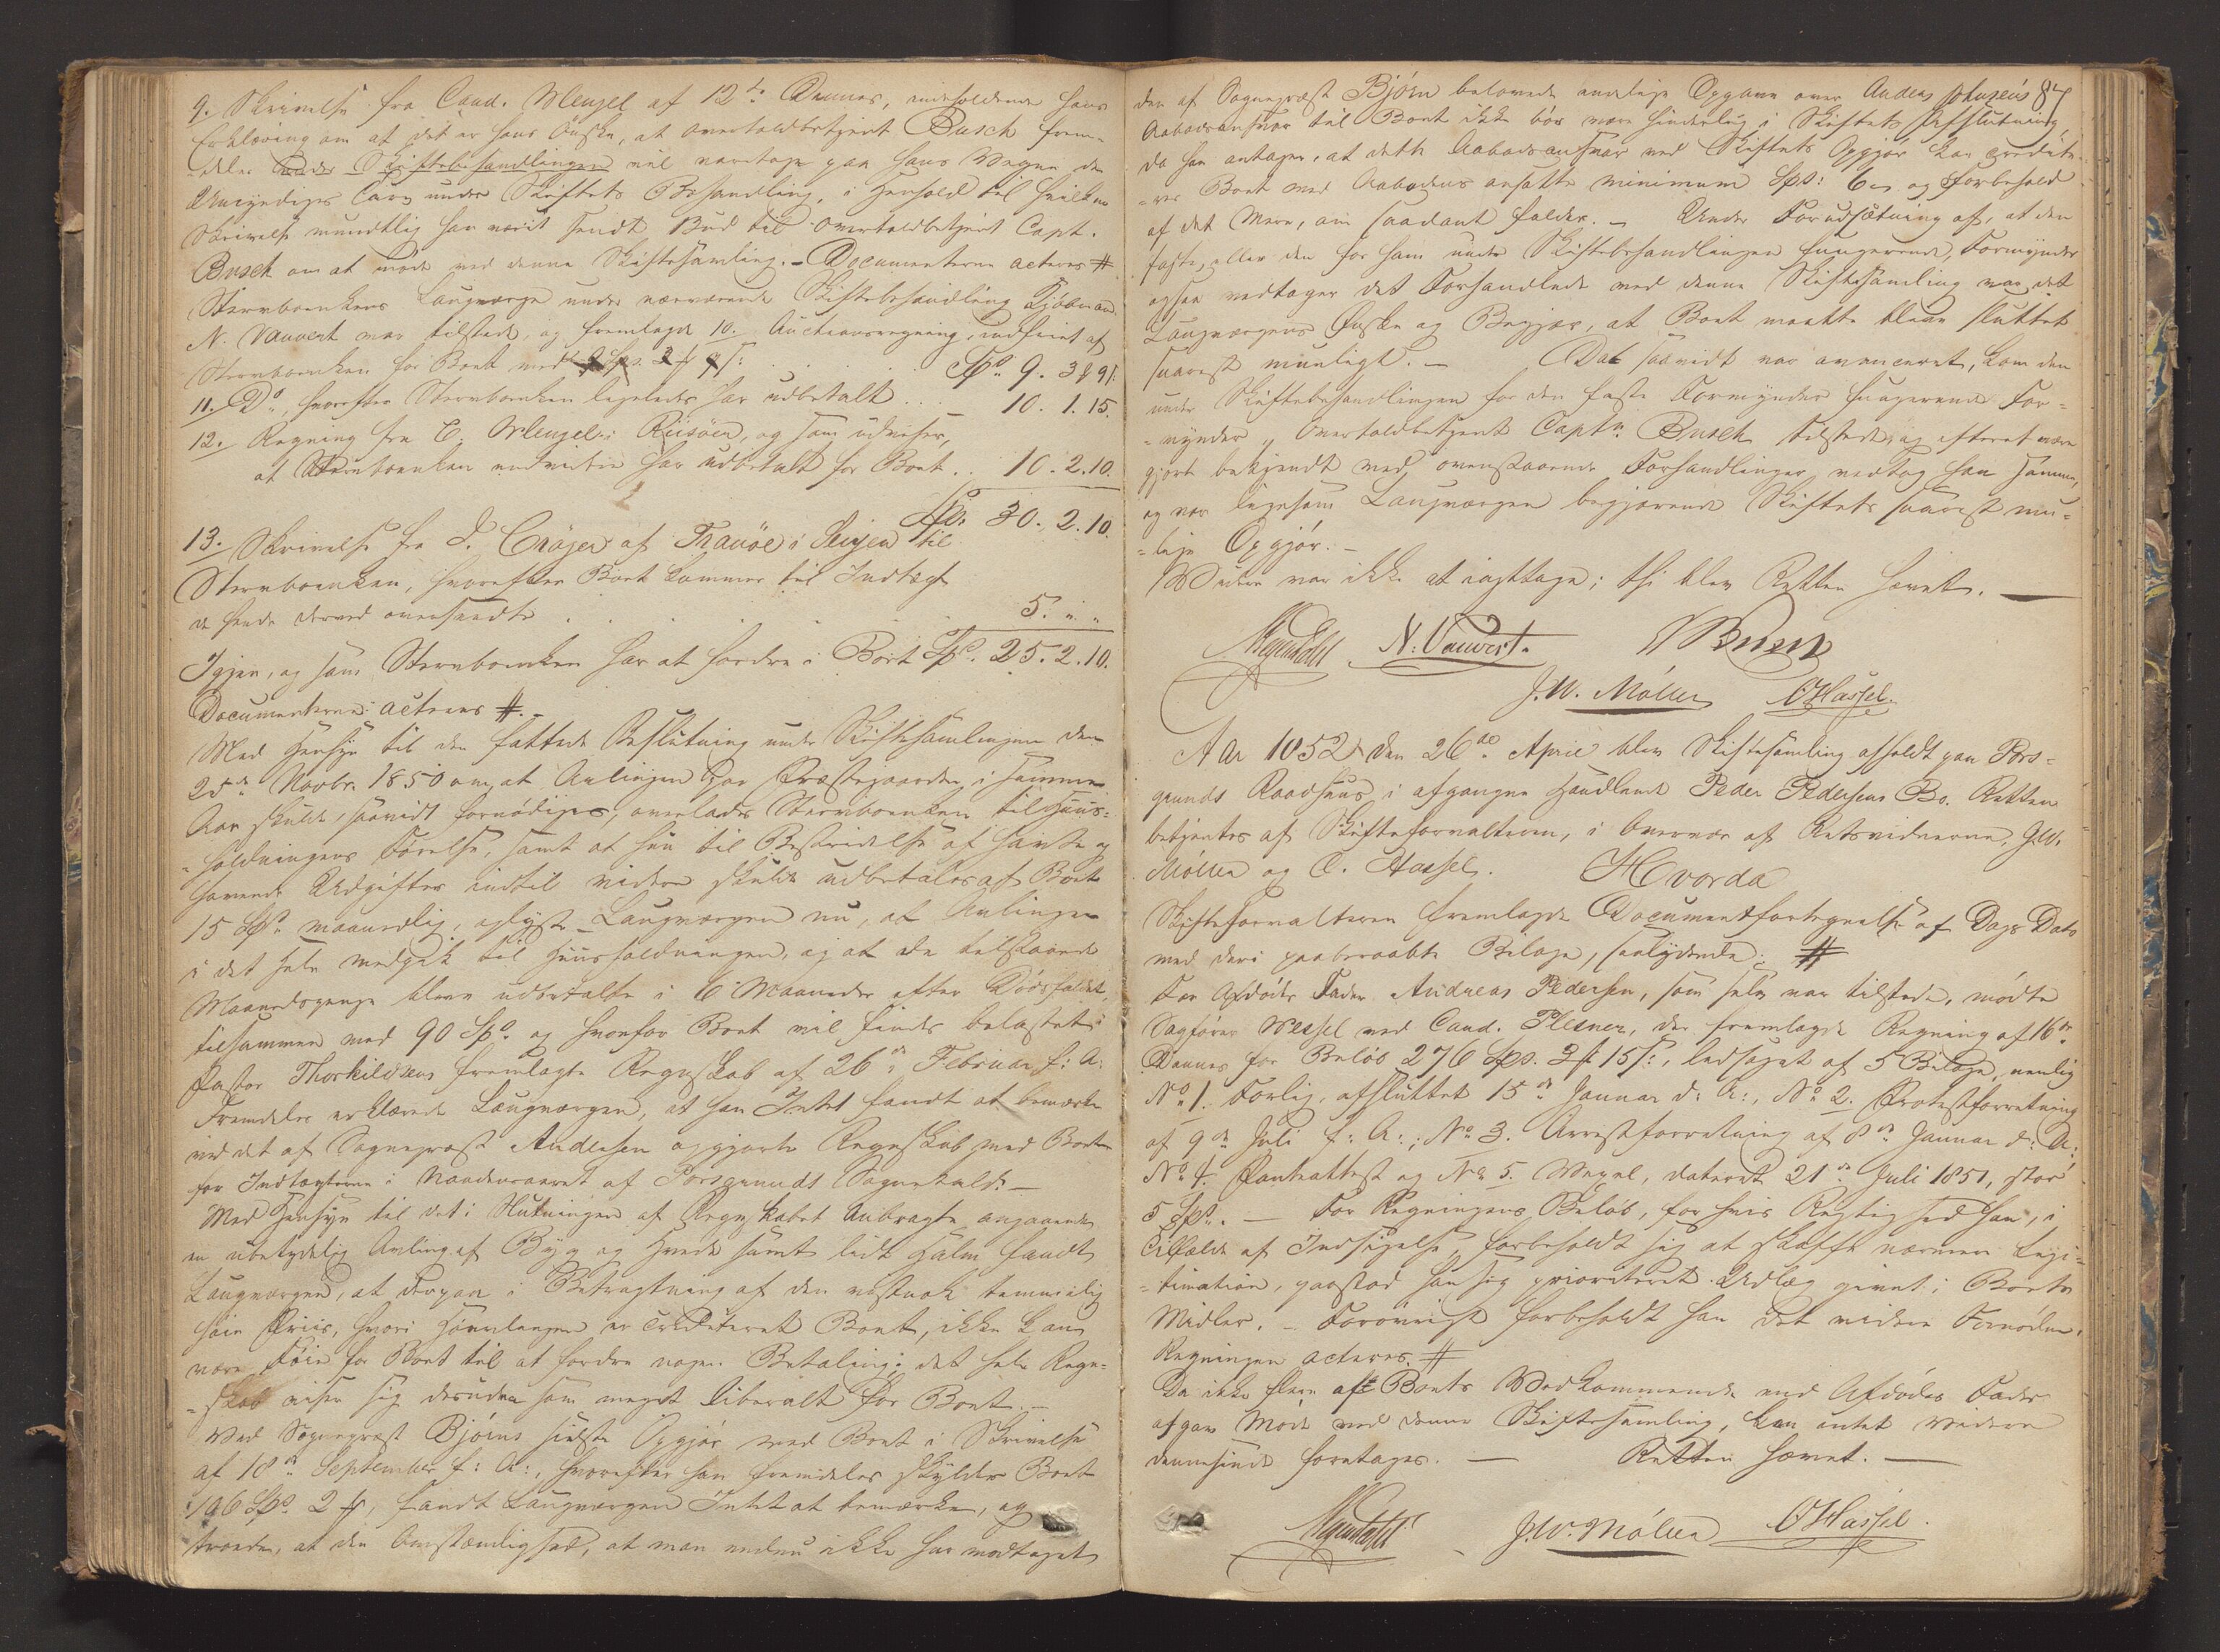 9. Skrivelse fra Cand. Wleugel af 12te Dennes, indeholdende hans
Erklæring om at det er hans Ønske, at Overtoldbetjent Busch frem-
deles under Skiftebehandlingen vil varetage paa hans Vegne de
Umyndiges Tarv under Skiftets Behandling, i Henhold til hvilken
Skrivelse mundtlig har været sendt Bud til Overtoldbetjent Capt.
Busch om at møde ved denne Skiftesamling. – Documenterne acteres #
Stervboenkens Laugværge under nærværende Skiftebehandling Kjøbmand
N. Vauvert var tilstede, og fremlagde 10. Auctionsregning, indfriet af
Stervboenken for Boet med Spd. 9. 3 ß 9 s:
11. Do, hvorefter Stervboenken ligeledes har udbetalt .. – 10. 1. 15.
12. Regning fra C. Wleugel i Riisøer, og som udviser,
at Stervboenken endvidere har udbetalt for Boet .. 10. 2. 10.
Spd. 30. 2. 10.
13. Skrivelse fra J. Crøger af Tranøe i Senjen til
Stervboenken, hvorefter Boet kommer til Indtægt
de hende derved oversendte . . . . 5. " "
Igjen, og som Stervboenken har at fordre i Boet Spd. 25. 2. 10.
Documenterne acteres #. –
Med Hensyn til den fattede Beslutning under Skiftesamlingen den
25de Novbr. 1850 om at Avlingen paa Præstegaarden i samme
Aar skulde, saavidt fornødiges, overlades Stervboenken til Huus-
holdningens Førelse, samt at hun til Bestridelse af hendes
havende Udgifter indtil videre skulde udbetales af Boet
15 Spd. maanedlig, oplyste Laugværgen nu, at Avlingen
i det hele medgik til Huusholdningen, og at de tilstaaede
Maanedspenge bleve udbetalte i 6 Maaneder efter Dødsfaldet,
tilsammen med 90 Spd. og hvorfor Boet vil findes belastet i
Pastor Thorkildsens fremlagte Regnskab af 26de Februar f: A:
Fremdeles erklærede Laugværgen, at han Intet fandt at bemærke
ved det af Sognepræst Andersen opgjorte Regnskab med Boet
for Indtægterne i Naadensaaret af Porsgrunds Sognekald. –
Med Hensyn til det i Slutningen af Regnskabet Anbragte angaaende
en ubetydelig Avling af Byg og Hvede samt lidt Halm fandt
Laugværgen, at derpaa i Betragtning af den vistnok temmelig
høie Priis, hvori Høavlingen er crediteret Boet, ikke kan
være Føie for Boet til at fordre nogen Betaling; det hele Regn-
skab viser sig desuden som meget liberalt for Boet. –
Ved Sognepræst Bjørns sidste Opgjør med Boet i Skrivelse
af 18de September f: A:, hvorefter han fremdeles skylder Boet
196 Spd. 2 ß, fandt Laugværgen Intet at bemærke, og
troede, at den Omstændighed, at man endnu ikke har modtaget
87
den af Sognepræst Bjørn belovede endelige Opgave over
Aabodsansvar til Boet ikke bør være hinderlig i Skiftets Afslutning
da han antager, at dette Aabodsansvar ved Skiftets Opgjør kan credite-
res Boet med Aabodens ansatte minimum Spd: 6 og Forbehold
af det Mere, om saadant falder. – Under Forudsætning af, at den
faste, eller den for ham under Skiftebehandlingen fungerende, Formynder
ogsaa vedtager det Forhandlede ved denne Skiftesamling var det
Laugværgens Ønske og Begjær, at Boet maatte blive sluttet
snarest muligt. – Da saavidt var avanceret, kom den
under Skiftebehandlingen for den faste Formynder fungerende For-
mynder, Overtoldbetjent Captn. Busch tilstede; og efterat være
gjort bekjendt med ovenstaaende Forhandlinger vedtog han samme,
og var ligesom Laugværgen begjærende Skiftets snarest mu-
lige Opgjør. –
Videre var ikke at iagttage; thi blev Retten hævet. –
N. Vauvert. Busch
J. W. Møller O Hassel.
Aar 1852 den 26de April blev Skiftesamling afholdt paa Pors-
grunds Raadhuus i afgangne Handlende Peder Pedersens Bo. Retten
betjentes af Skifteforvalteren, i Overvær af Retsvidnerne, J. W.
Møller og O. Hassel. Hvorda
Skifteforvalteren fremlagde Documentfortegnelse af Dags Dato
med deri paaberaabte Bilage, saalydende: #
For Afdødes Fader Andreas Pedersen, som selv var tilstede, mødte
Sagfører Wessel ved Cand. Plesner, der fremlagde Regning af 16de
Dennes for Beløb 276 Spd. 3 ß 15 s:, ledsaget af 5 Bilage, nemlig
No. 1. Forlig, afsluttet 15de Januar d: A:, No. 2. Protestforretning
af 9de Juli f: A:; No. 3. Arrestforretning af 8de Januar d: A:
No. 4. Panteattest og No. 5. Vexel, dateret 21de Juli 1851, stor
5 Spd. – For Regningens Beløb, for hvis Rigtighed han, i
Tilfælde af Indsigelse, forbeholdt sig at skaffe nærmere Legi-
timation, paastod han sig prioriteret Udlæg givet i Boets
Midler. – Forøvrigt forbeholdt han det videre Fornødne.
Regningen acteres. #
Da ikke flere af Boets Vedkommende end Afdødes Fader
afgav Møde ved denne Skiftesamling, kan intet videre
dennesinde foretages. – Retten hævet. –
J. W. Møller O Hassel.